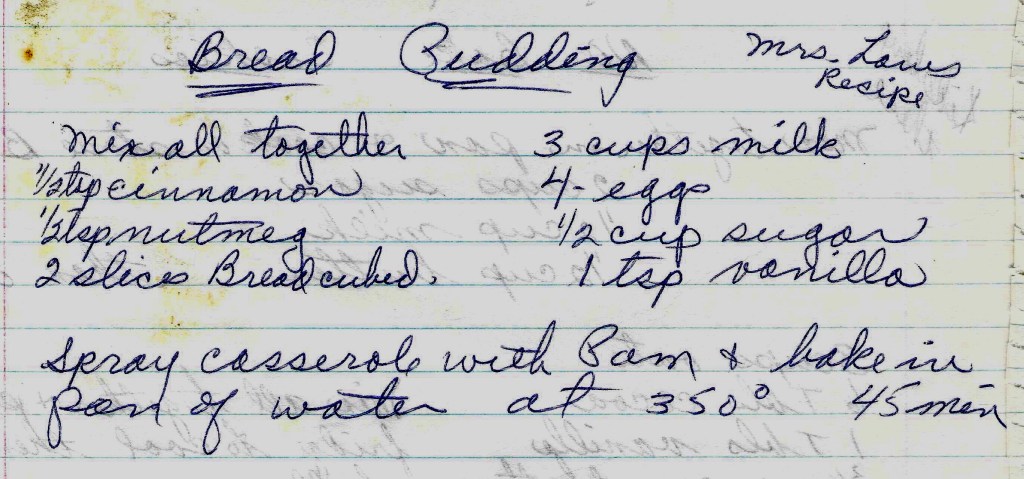 Bread Pudding
Mrs. Laws
Recipe
Mix all together
1/2 tsp cinnamon
1/2 tsp nutmeg
2 slices Bread cubed.
3 cups milk
4 - eggs
1/2 cup sugar
1 tsp vanilla
Spray casserole with Pam & bake in
pan of water at 350° 45 min